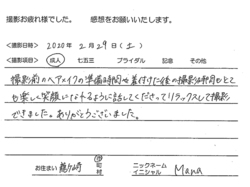 撮影お疲れ様でした。 感想をお願いいたします。
<撮影日時> 2020年 2月29日(土)
<撮影項目> 成人 七五三 ブライダル 記念 その他
撮影前のヘアメイクの準備時間も着付けた後の撮影の時間もとて
も楽しく笑顔になれるように話してくださってリラックスして撮影
できました。ありがとうございました。
お住まい 龍ヶ崎 市 町 村 ニックネーム イニシャル Mana